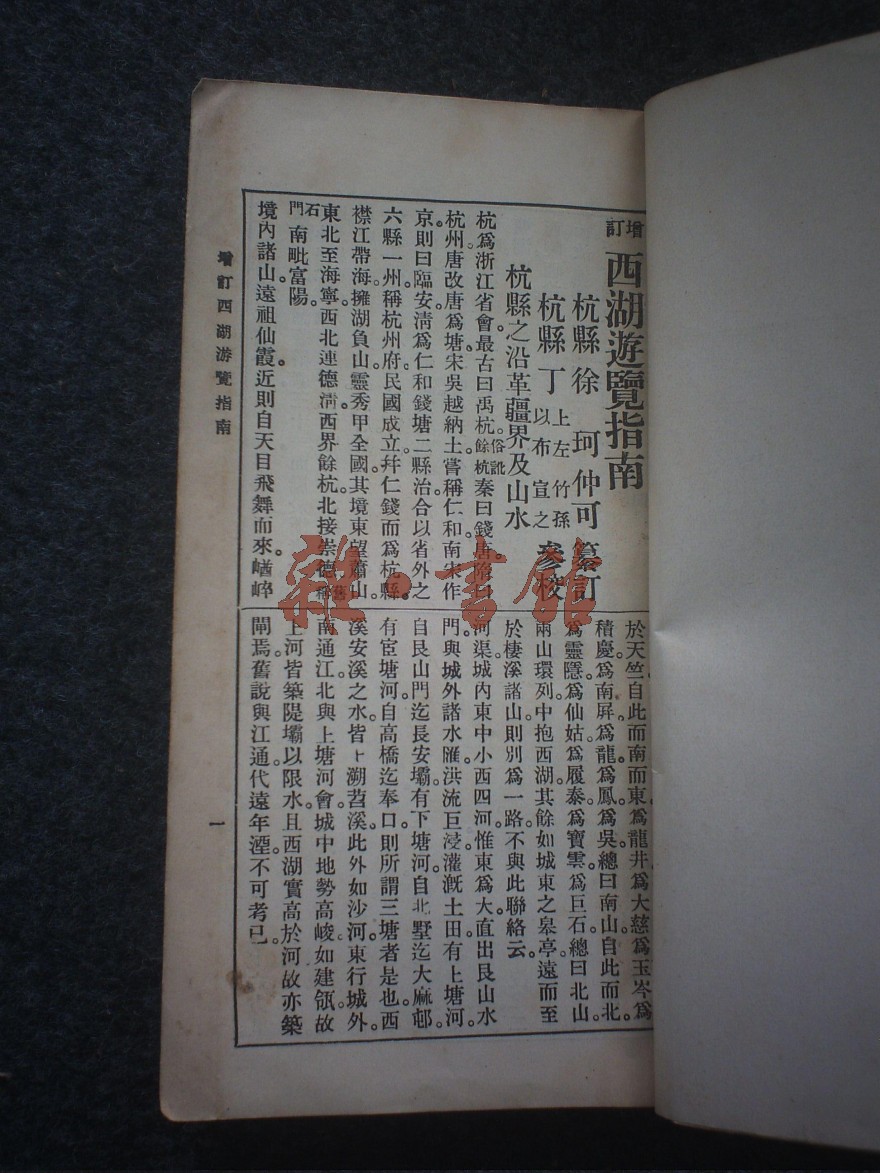 增訂西湖遊覽指南
杭縣徐珂仲可纂訂
杭縣丁上左竹孫以布宣之參校
杭縣之沿革疆界及山水
杭爲浙江省會。最古曰禹杭。俗訛餘杭秦曰錢唐。隋曰
杭州。唐改唐爲塘。宋吳越納土嘗稱仁和。南宋作
京則曰臨安。淸爲仁和錢塘二縣治。合以省外之
六縣一州稱杭州府。民國成立。幷仁錢而爲杭縣。
襟江帶海。擁湖負山。靈秀甲全國。其境東望蕭山。
東北至海寧。西北連德淸。西界餘杭。北接崇德。舊稱
石門南毗富陽。
境內諸山。遠祖仙霞。近則自天目飛舞而來。崷崪
於天竺。自此而南而東。爲龍井。爲大慈。爲玉岑。爲
積慶。爲南屛。爲龍。爲鳳。爲吳。總曰南山。自此而北。
爲靈隱。爲仙姑。爲履泰。爲寶雲。爲巨石。總曰北山。
兩山環列。中抱西湖。其餘如城東之皋亭。遠而至
於棲溪諸山。則別爲一路。不與此聯絡云。
河渠城內東中小西四河。惟東爲大。直出艮山水
門。與城外諸水匯。洪流巨浸。灌漑土田。有上塘河。
自艮山門迄長安壩。有下塘河。自北墅迄大麻邨。
有宦塘河。自高橋迄奉口。則所謂三塘者是也。西
溪安溪之水。皆上溯苕溪。此外如沙河。東行城外。
南通江。北與上塘河會。城中地勢高峻如建瓴。故
上河皆築隄壩以限水。且西湖實高於河。故亦築
閘焉。舊說與江通。代遠年湮。不可考已。
增訂西湖游覽指南
一
雜·書館